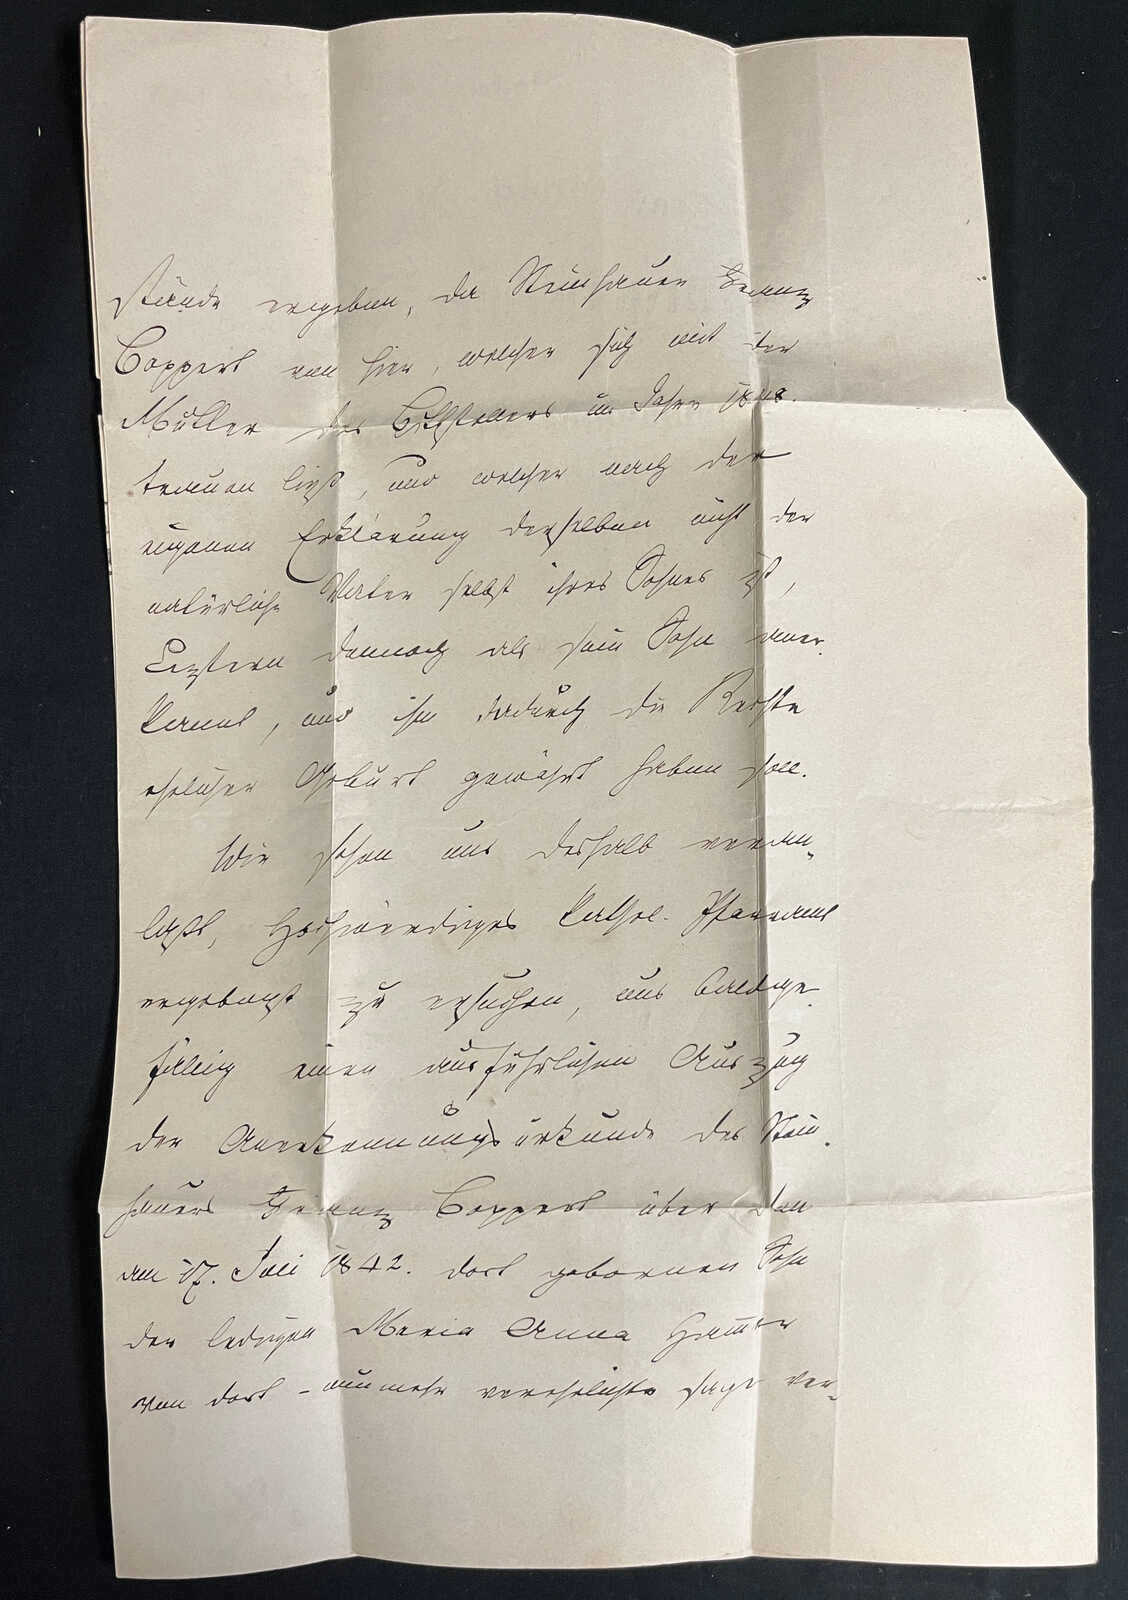 stände ergeben, da Steinhauer Franz
Coppert von hier, welcher sich mit der
Mutter des Bittstellers im Jahre 1848.
trauen ließ, und welcher nach der
eigenen Erklärung derselben nicht der
natürliche Vater selbst ihres Sohnes ist,
Leztern dennoch als sein Sohn aner-
kannt, und ihm dadurch die Rechte
ehelicher Geburt gewährt haben soll.
Wir sehen uns deshalb veran-
laßt, Hochwürdiges kathol. Pfarramt
ergebenst zu ersuchen, uns baldge-
fällig einen ausführlichen Auszug
der Anerkennungsurkunde des Stein-
hauers Franz Coppert über den
am 17. Juli 1842. dort gebornen Sohn
der ledigen Maria Anna
von dort – nunmehr verehelichte sage ver-